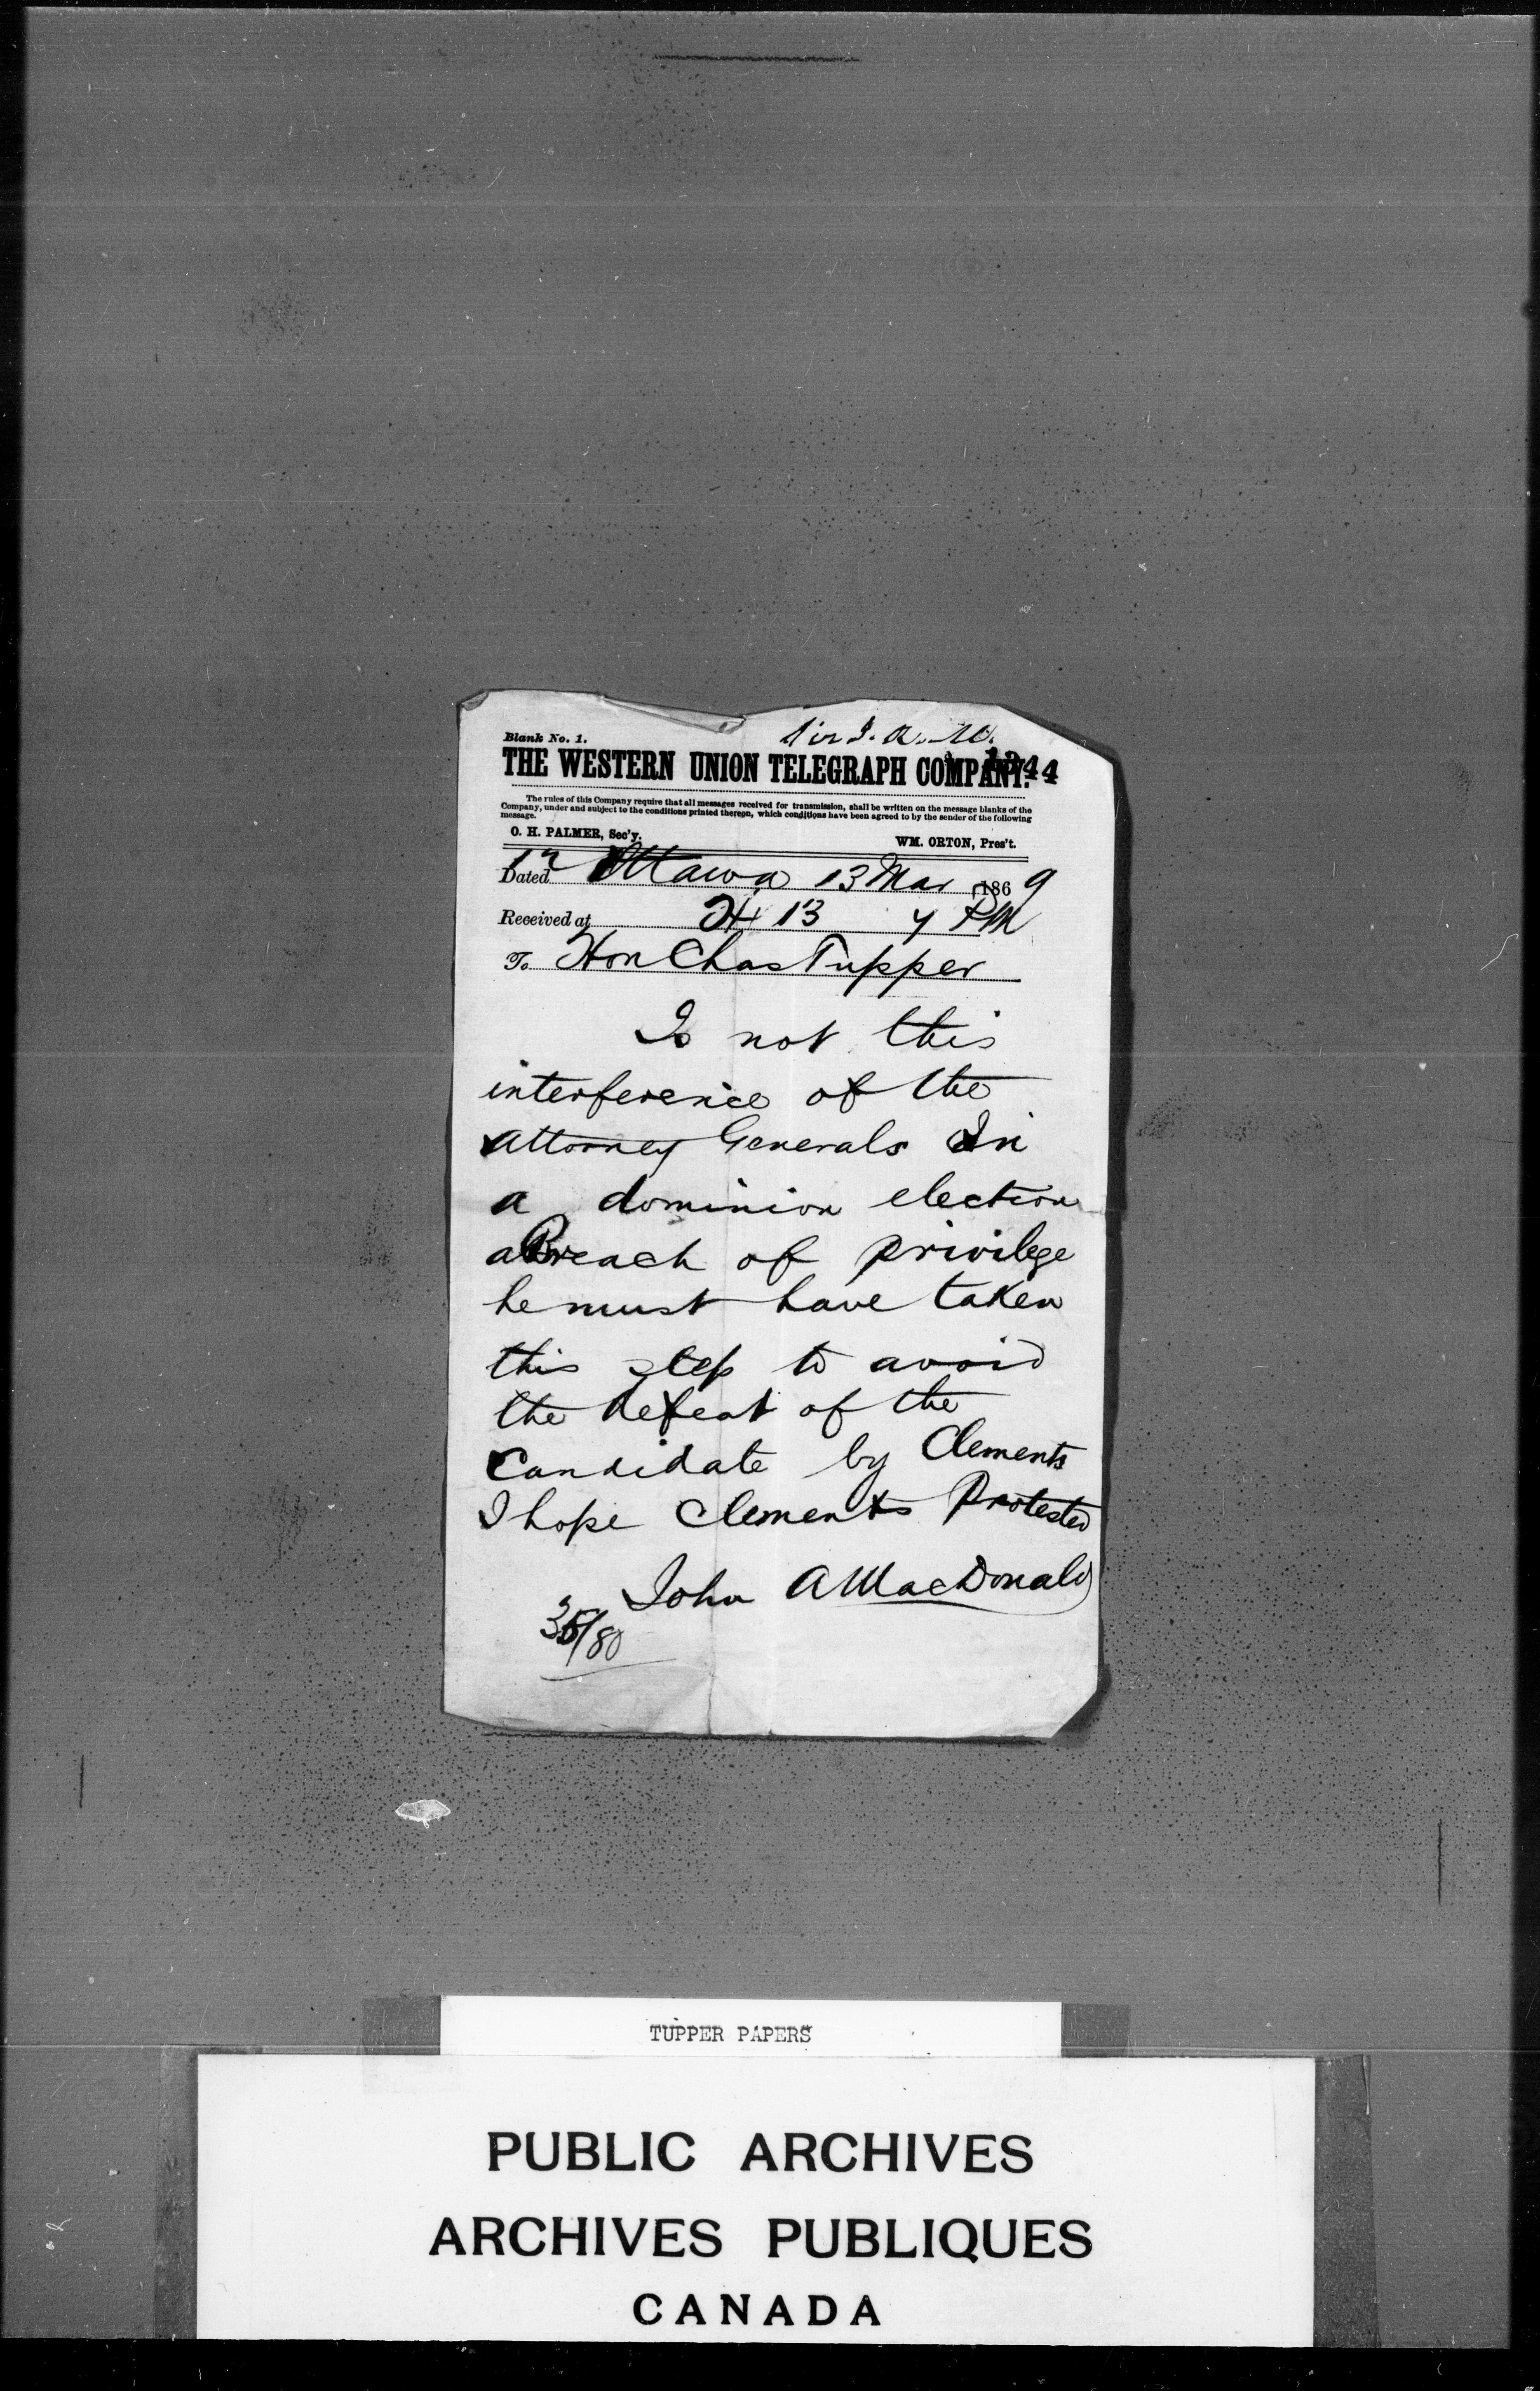 Sir J. A. M.
Blank No. 1.
THE WESTERN UNION TELEGRAPH COMPANY.
1344
The rules of this Company require that all messages received for transmission, shall be written on the message blanks of the
Company, under and subject to the conditions printed thereon, which conditions have been agreed to by the sender of the following
message.
O. H. PALMER, Sec'y.
WM. ORTON, Pres't.
Dated Ottawa 13 Mar 1869
Received at 13 4 PM
To Hon Chas Tupper
Is not this
interference of the
attorney Generals In
a dominion election
a Breach of privilege
he must have taken
this step to avoid
the defeat of the
Candidate by Clements
I hope Clements Protested
John A MacDonald
35/80
TUPPER PAPERS
PUBLIC ARCHIVES
ARCHIVES PUBLIQUES
CANADA